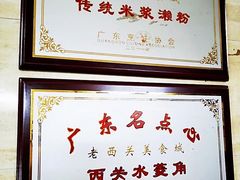 传统米浆濑粉
广东烹饪协会
广东名点
老西关美食城
西关水菱角